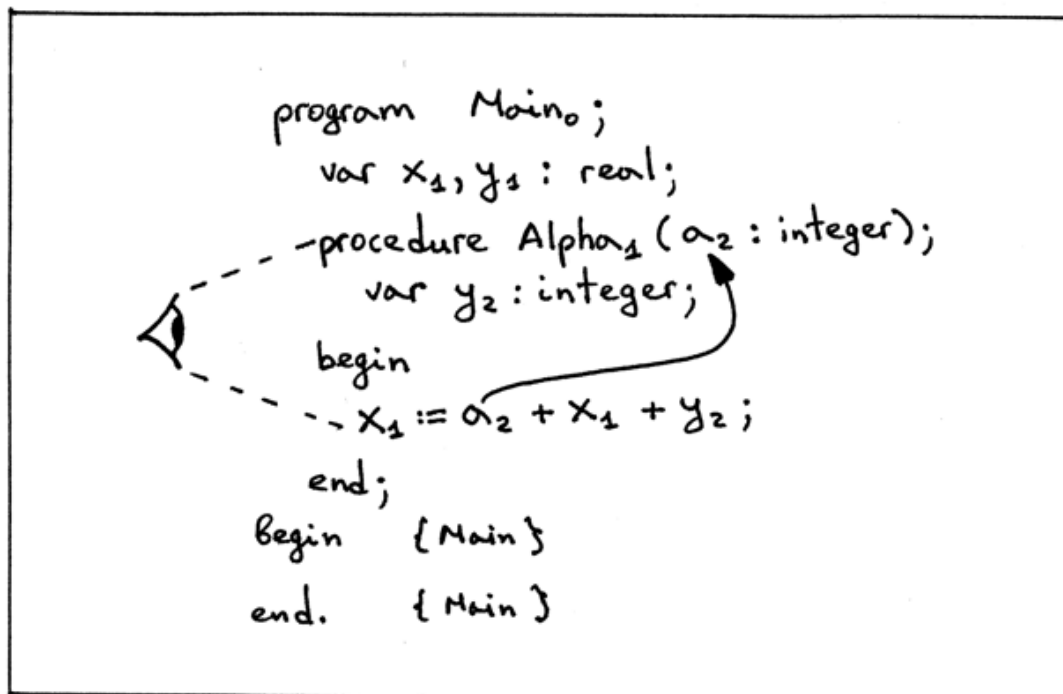 program Main₀;
var x₁, y₁ : real;
procedure Alpha₁ (a₂ : integer);
var y₂ : integer;
begin
x₁ := a₂ + x₁ + y₂ ;
end;
Begin {Main}
end. {Main}